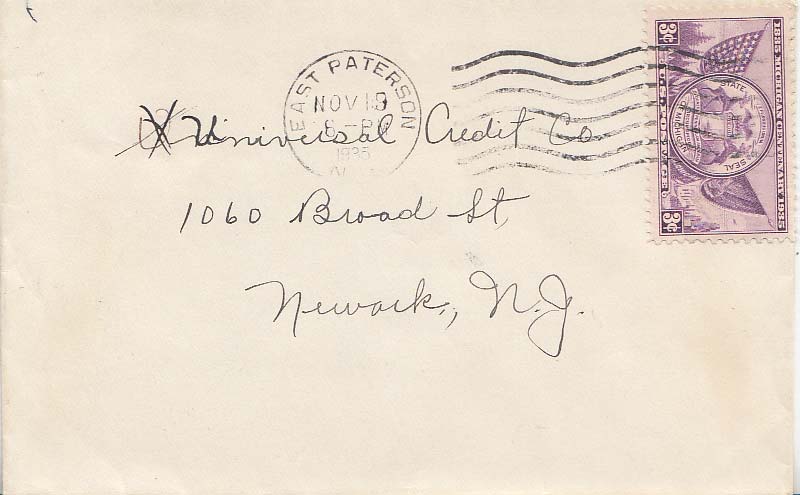 EAST PATERSON
NOV 19
6 - PM
1935
N.
Universal Credit Co.
1060 Broad St.
Newark, N.J.
3¢
1835 MICHIGAN CENTENARY 1935
STATE OF MICHIGAN
SEAL
3¢